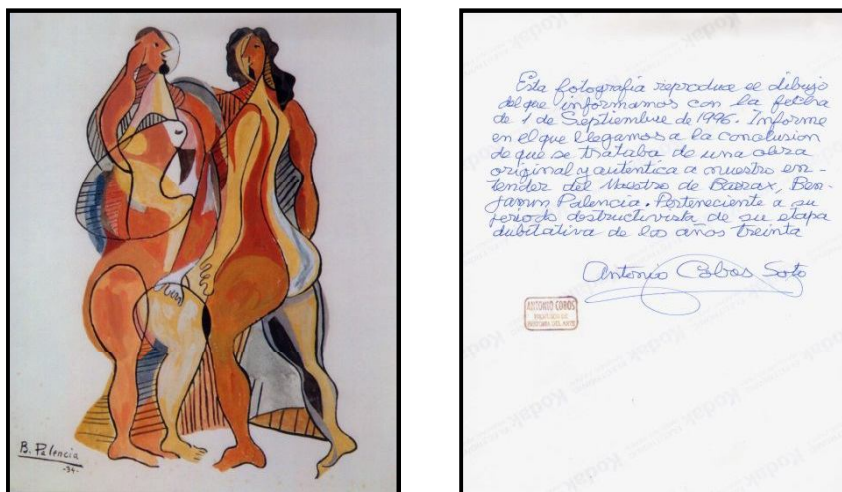 B. Palencia
-34-
Esta fotografía reproduce el dibujo
del que informamos con la fecha
de 1 de Septiembre de 1996. Informe
en el que llegamos a la conclusion
de que se trataba de una obra
original y auténtica a nuestro en-
tender del Maestro de Barrax, Ben-
jamin Palencia. Perteneciente a su
periodo destructivista de su etapa
dubitativa de los años treinta
Antonio Cobos Soto
ANTONIO COBOS
Kodak